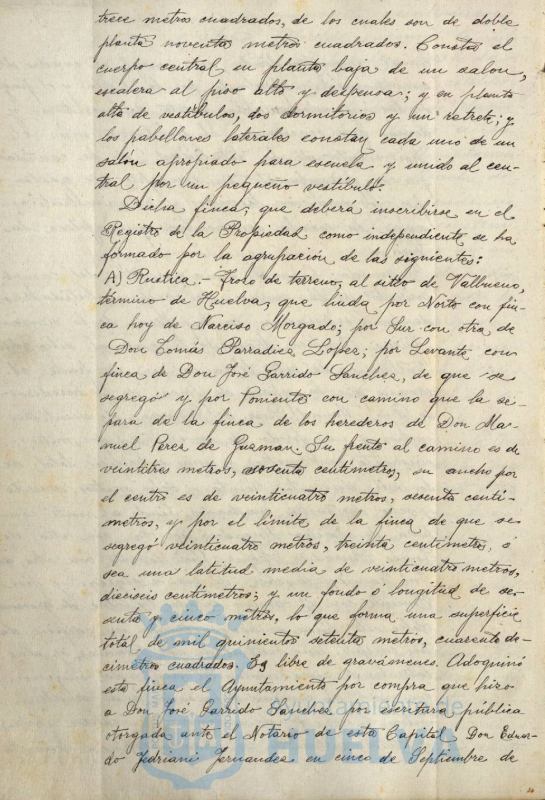 trece metros cuadrados, de los cuales son de doble
planta noventa metros cuadrados. Consta el
cuerpo central en planta baja de un salon,
escalera al piso alto y despensa; y en planta
alta de vestíbulos, dos dormitorios y un retrete; y
los pabellones laterales constan cada uno de un
salón apropiado para escuela y unido al cen-
tral por un pequeño vestíbulo.
Dicha finca, que deberá inscribirse en el
Registro de la Propiedad como independiente se ha
formado por la agrupación de las siguientes:
A) Rustica.- Trozo de terreno, al sitio de Valbueno,
término de Huelva, que linda por Norte con fin-
ca hoy de Narciso Morgado; por Sur con otra de
Don Tomás Parradiez Lopez; por Levante con
finca de Don José Garrido Sanchez, de que se
segregó y por Poniente con camino que la se-
para de la finca de los herederos de Don Ma-
nuel Perez de Guzman. Su frente al camino es de
veintitres metros, sesenta centímetros, su ancho por
el centro es de veinticuatro metros, sesenta centí-
metros, y por el límite de la finca de que se
segregó veinticuatro metros, treinta centímetros, ó
sea una latitud media de veinticuatro metros,
dieciseis centímetros; y un fondo ó longitud de se-
senta y cinco metros, lo que forma una superficie
total de mil quinientos setenta metros, cuarenta de-
címetros cuadrados. Es libre de gravámenes. Adquirió
esta finca el Ayuntamiento por compra que hizo
a Don José Garrido Sanchez por escritura pública
otorgada ante el Notario de esta Capital, Don Eduar-
do Fedriani Fernandez en cinco de Septiembre de
Ayuntamiento de
HUELVA